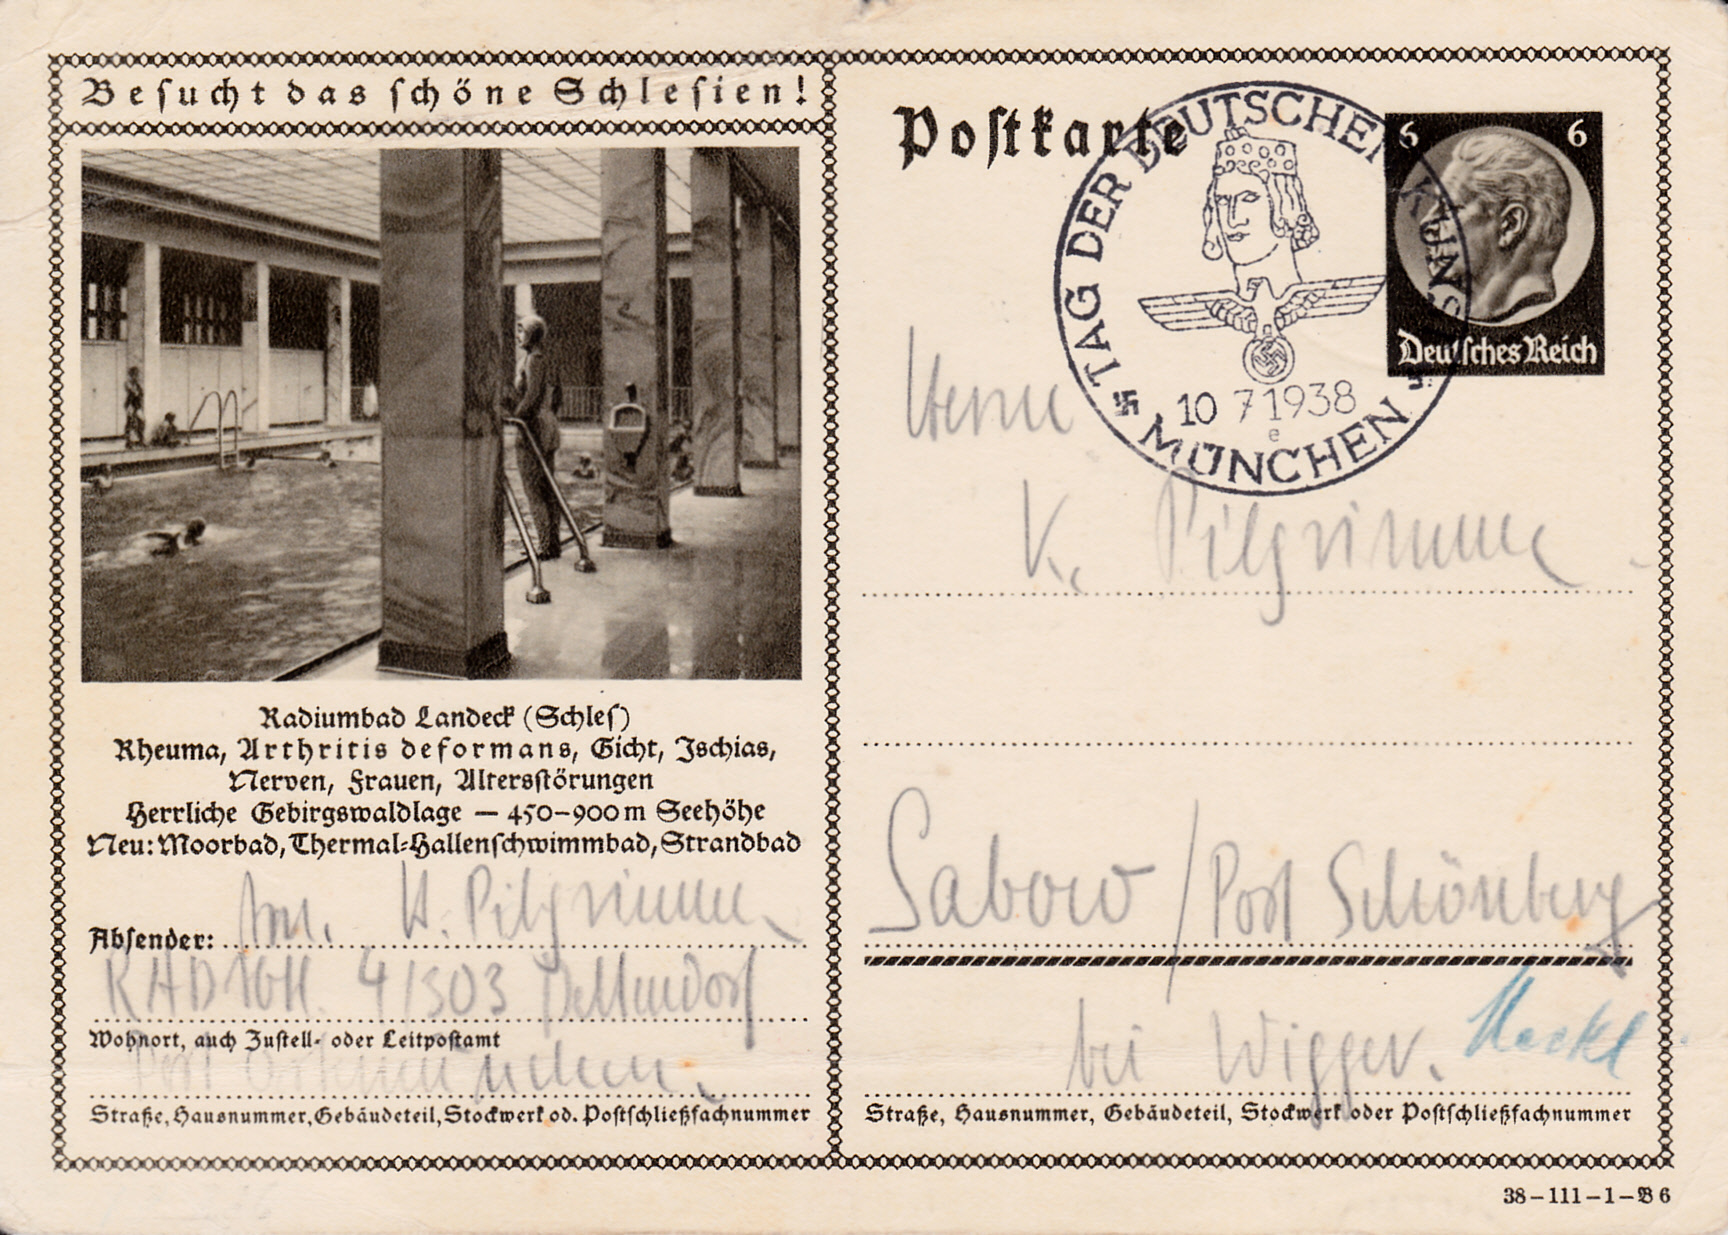 Besucht das schöne Schlesien!
Radiumbad Landeck (Schles)
Rheuma, Arthritis deformans, Gicht, Ischias,
Nerven, Frauen, Altersstörungen
Herrliche Gebirgswaldlage — 450–900 m Seehöhe
Neu: Moorbad, Thermal-Hallenschwimmbad, Strandbad
Absender: H. Pilgrimm
RAD 4/303
Wohnort, auch Zustell- oder Leitpostamt
Post
Straße, Hausnummer, Gebäudeteil, Stockwerk od. Postschließfachnummer
Postkarte
TAG DER DEUTSCHEN KUNST
10 7 1938
e
MÜNCHEN
6 6
Deutsches Reich
Herrn
K. Pilgrimm
Sabow / Post Schönberg
Meckl
bei Wigger.
Straße, Hausnummer, Gebäudeteil, Stockwerk oder Postschließfachnummer
38–111–1–B 6